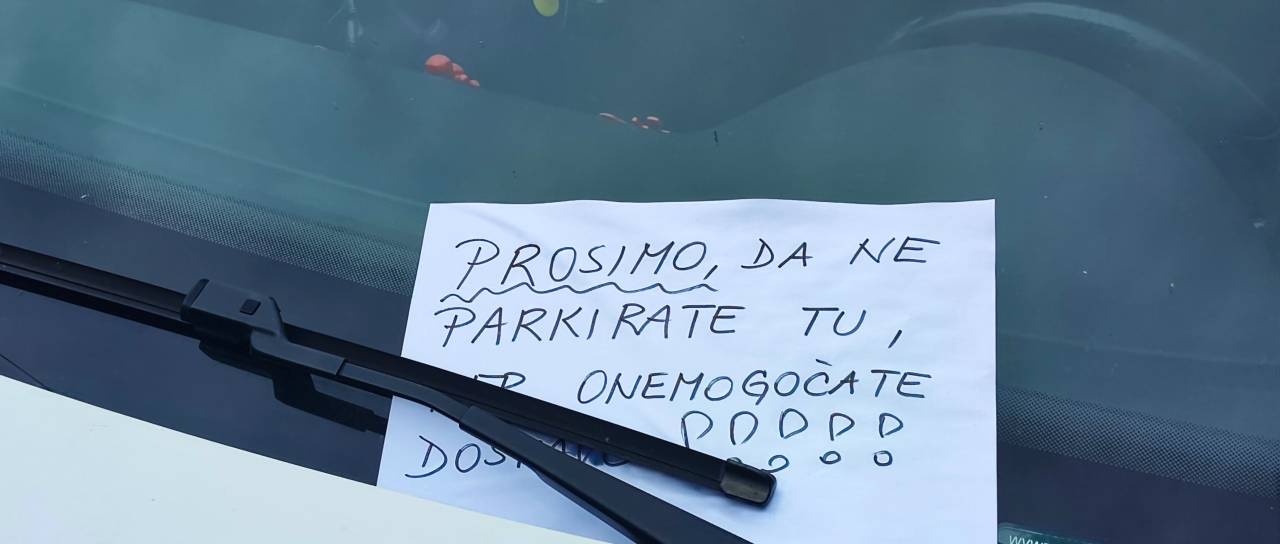 PROSIMO, DA NE
PARKIRATE TU,
ONEMOGOČATE
!!!!!
www.